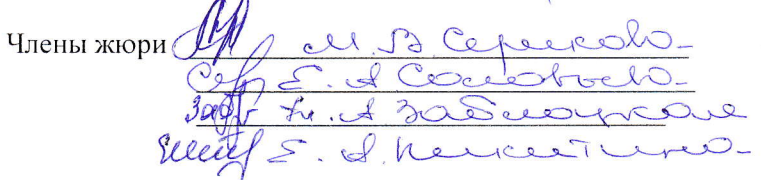 Члены жюри М. В. Серикова
Е. А Соловьева
А Заблоцкая
Е. А. Никитина